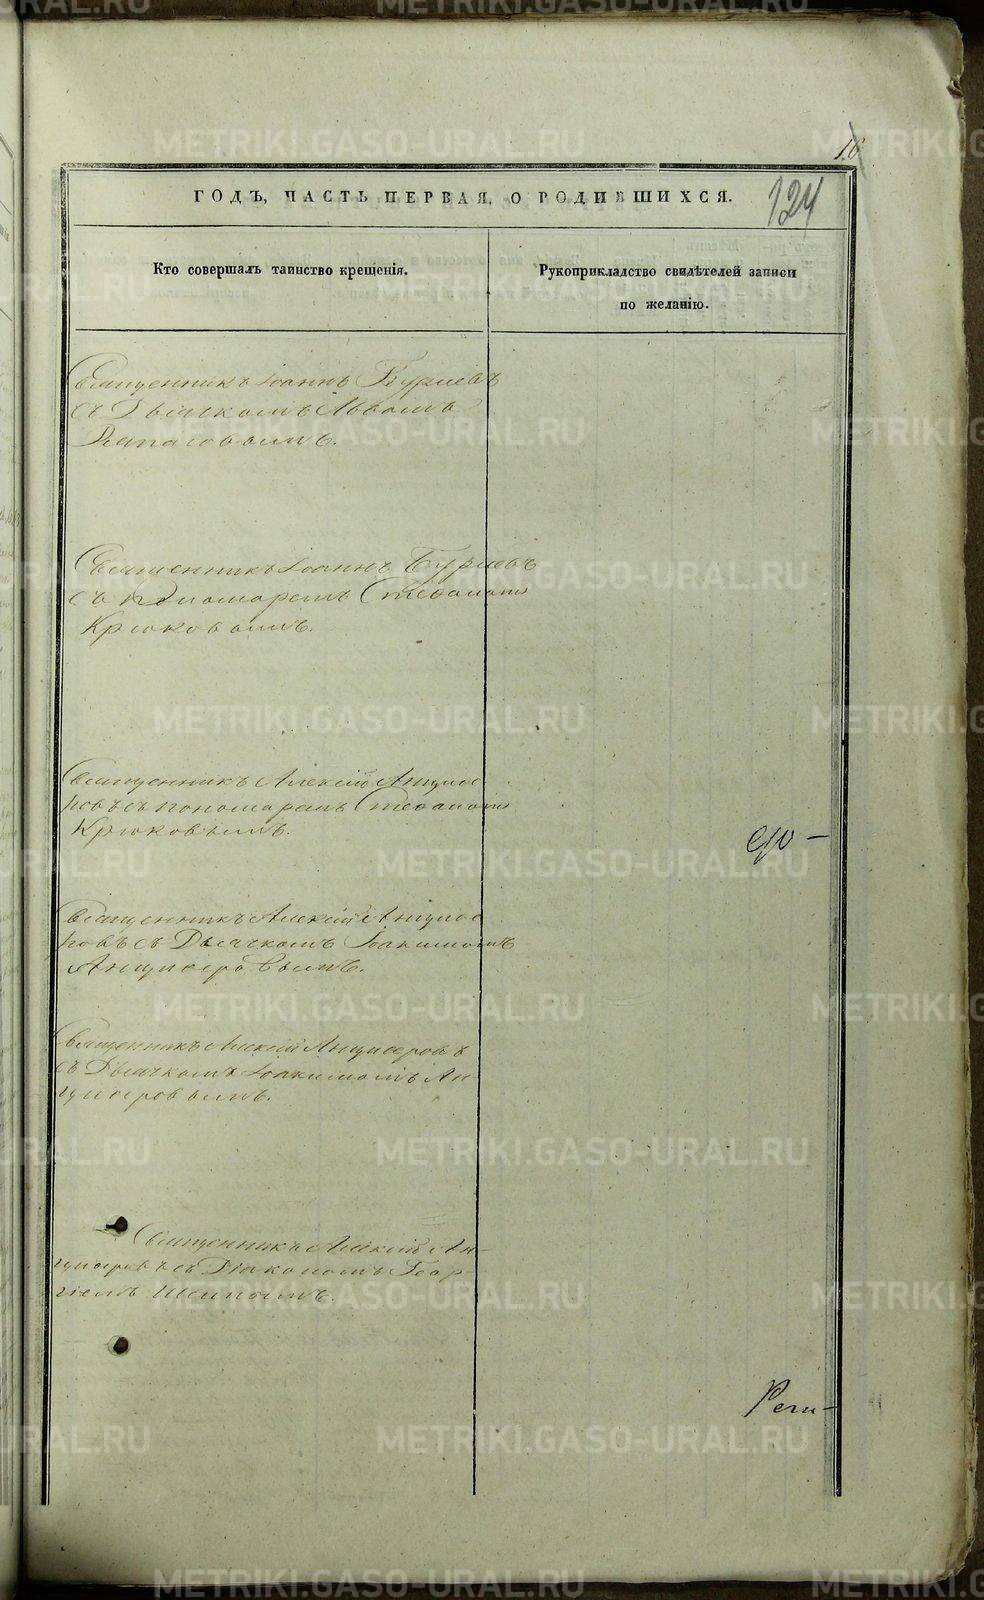 16
124
ГОДЪ, ЧАСТЬ ПЕРВАЯ, О РОДИВШИХСЯ.
Кто совершалъ таинство крещенія.
Рукоприкладство свидѣтелей записи
по желанію.
Священникъ Іоаннъ Бурлевъ
съ Дьячкомъ Львомъ
Священникъ Іоаннъ Бурлевъ
съ пономаремъ Стефаномъ
Крюковымъ.
Священникъ Алексій Анциѳе
ровъ съ пономаремъ Стефаномъ
Крюковымъ.
Священникъ Алексій Анциѳе
ровъ съ Дьячкомъ Іоакимомъ
Анциѳеровымъ.
Священникъ Алексій Анциѳеровъ
съ Дьячкомъ Іоакимомъ Ан-
циѳеровымъ.
Священникъ Алексій Ан-
циѳеровъ съ Діакономъ Геор-
гіемъ
METRIKI.GASO-URAL.RU